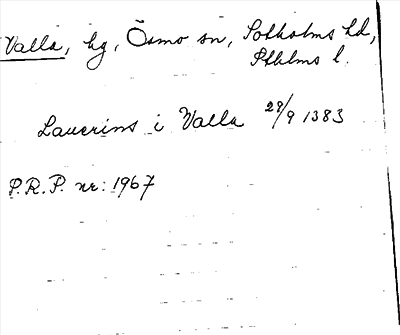 Valla, hg, Ösmo sn, Sotholms hd,
Sthlms l.
Laurens i Valla 28/9 1383
P.R.P. nr: 1967